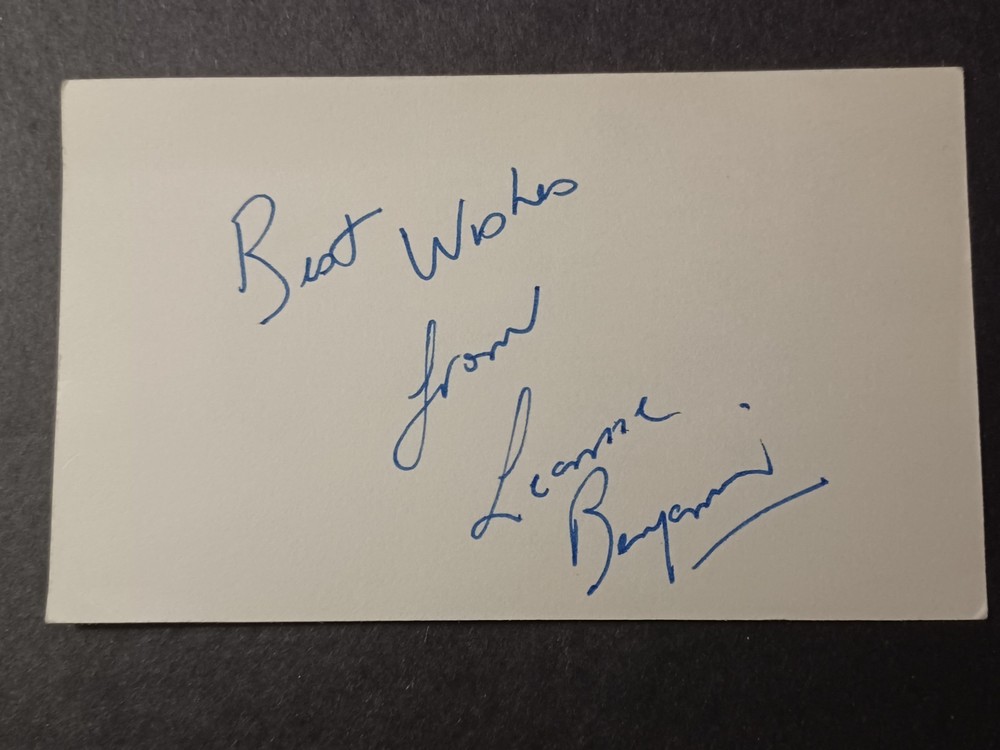 Best Wishes
from
Leanne
Benjamin